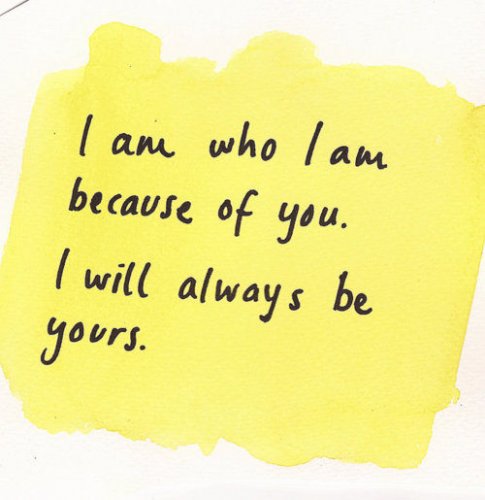 I am who I am
because of you.
I will always be
yours.